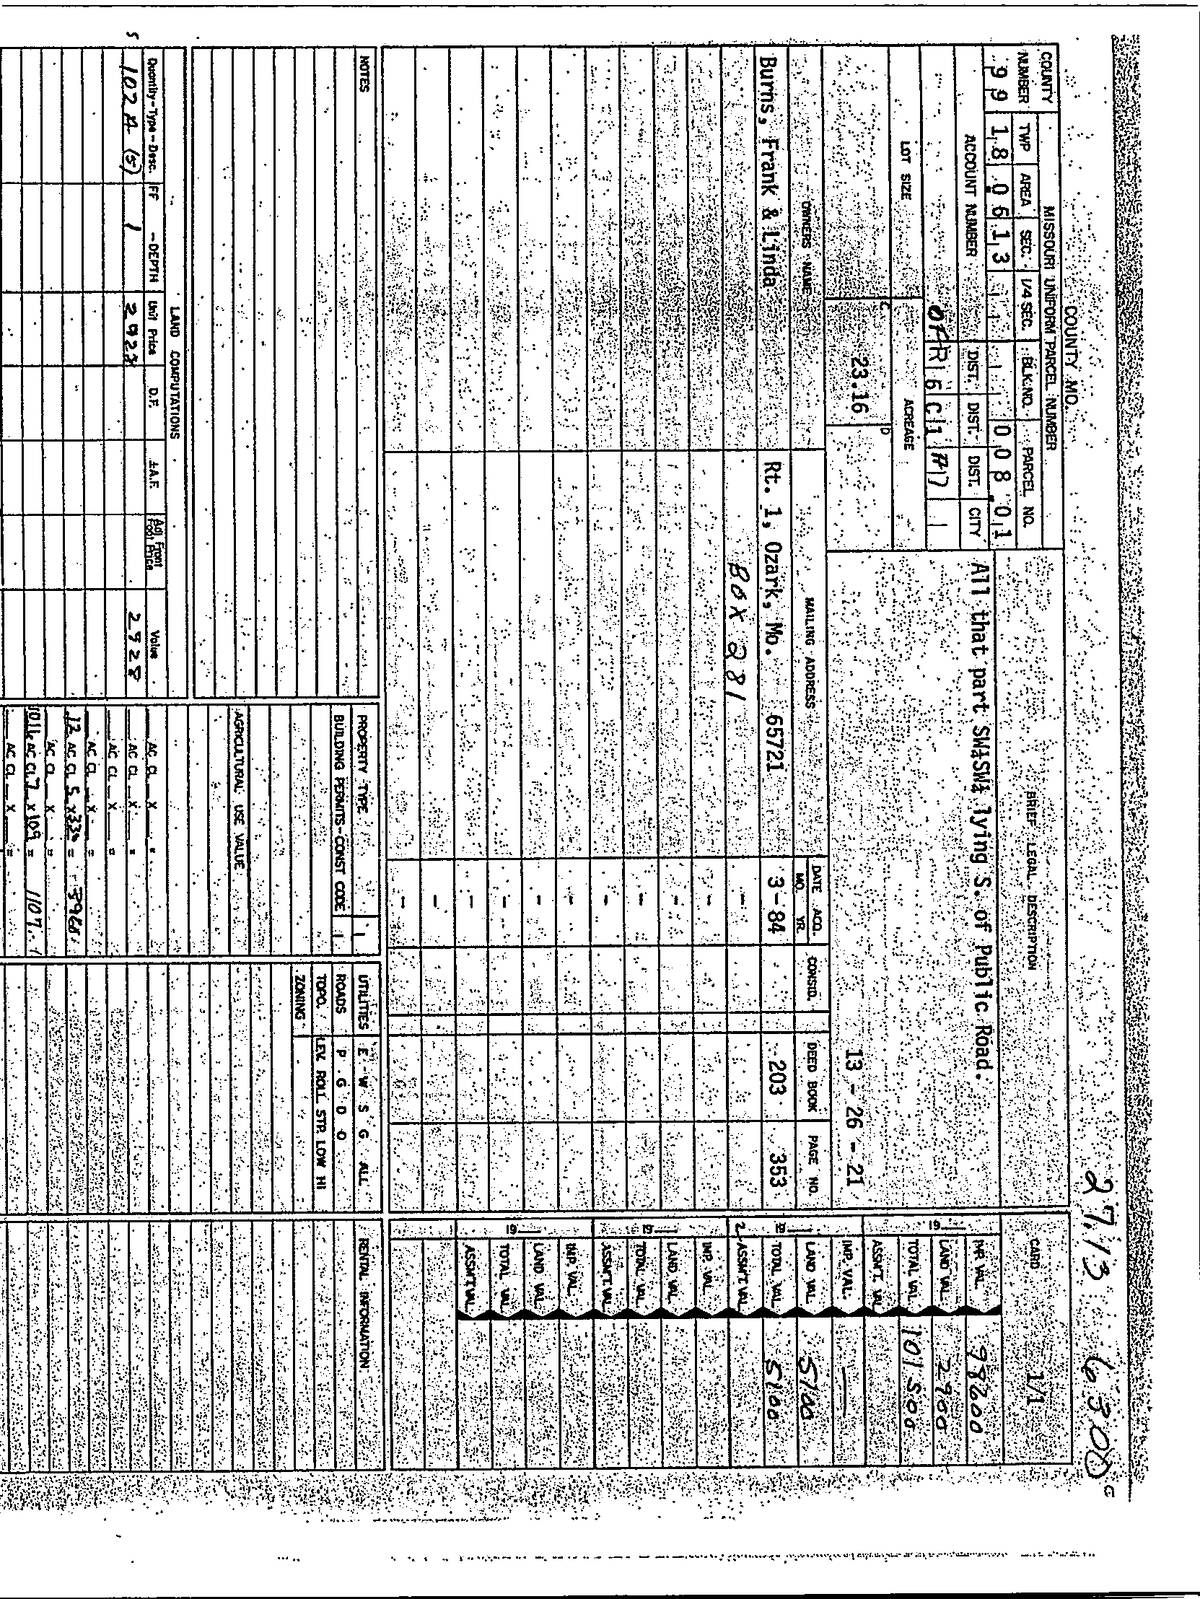 27.13 6300
G
COUNTY MO.
MISSOURI UNIFORM PARCEL NUMBER
COUNTY NUMBER TWP AREA SEC. 1/4 SEC. BLK.NO. PARCEL NO.
99 18 06 13 008.01
ACCOUNT NUMBER DIST. DIST. DIST. CITY
OFR 6 C1 A7
LOT SIZE ACREAGE
C 23.16 D
BRIEF LEGAL DESCRIPTION
All that part SW¼SW¼ lying S. of Public Road.
13 - 26 - 21
CARD 1/1
OWNERS NAME MAILING ADDRESS DATE ACQ. MO. YR. CONSID. DEED BOOK PAGE NO.
Burns, Frank & Linda Rt. 1, Ozark, Mo. 65721 3-84 203 353
BOX 281
19
IMP. VAL. 98600
LAND VAL. 2900
TOTAL VAL. 101500
ASSM'T. VAL.
19
IMP. VAL. —
LAND VAL. 5100
TOTAL VAL. 5100
ASSM'T. VAL.
19
IMP. VAL.
LAND VAL.
TOTAL VAL.
ASSM'T. VAL.
19
IMP. VAL.
LAND VAL.
TOTAL VAL.
ASSM'T. VAL.
NOTES
PROPERTY TYPE
BUILDING PERMITS-CONST CODE
UTILITIES E W S G ALL
ROADS P G D O
TOPO. LEV. ROLL STP. LOW HI
ZONING
RENTAL INFORMATION
AGRICULTURAL USE VALUE
LAND COMPUTATIONS
Quantity-Type-Desc. FF -DEPTH Unit Price D.F. ±A.F. Adj. Front Foot Price Value
S 102A (5) 1 2928 2928
AC CL X =
AC CL X =
AC CL X =
AC CL X =
12 AC CL 5 x 330 = 3960
AC CL X =
10.16 AC CL 7 x 109 = 1107.
AC CL X =